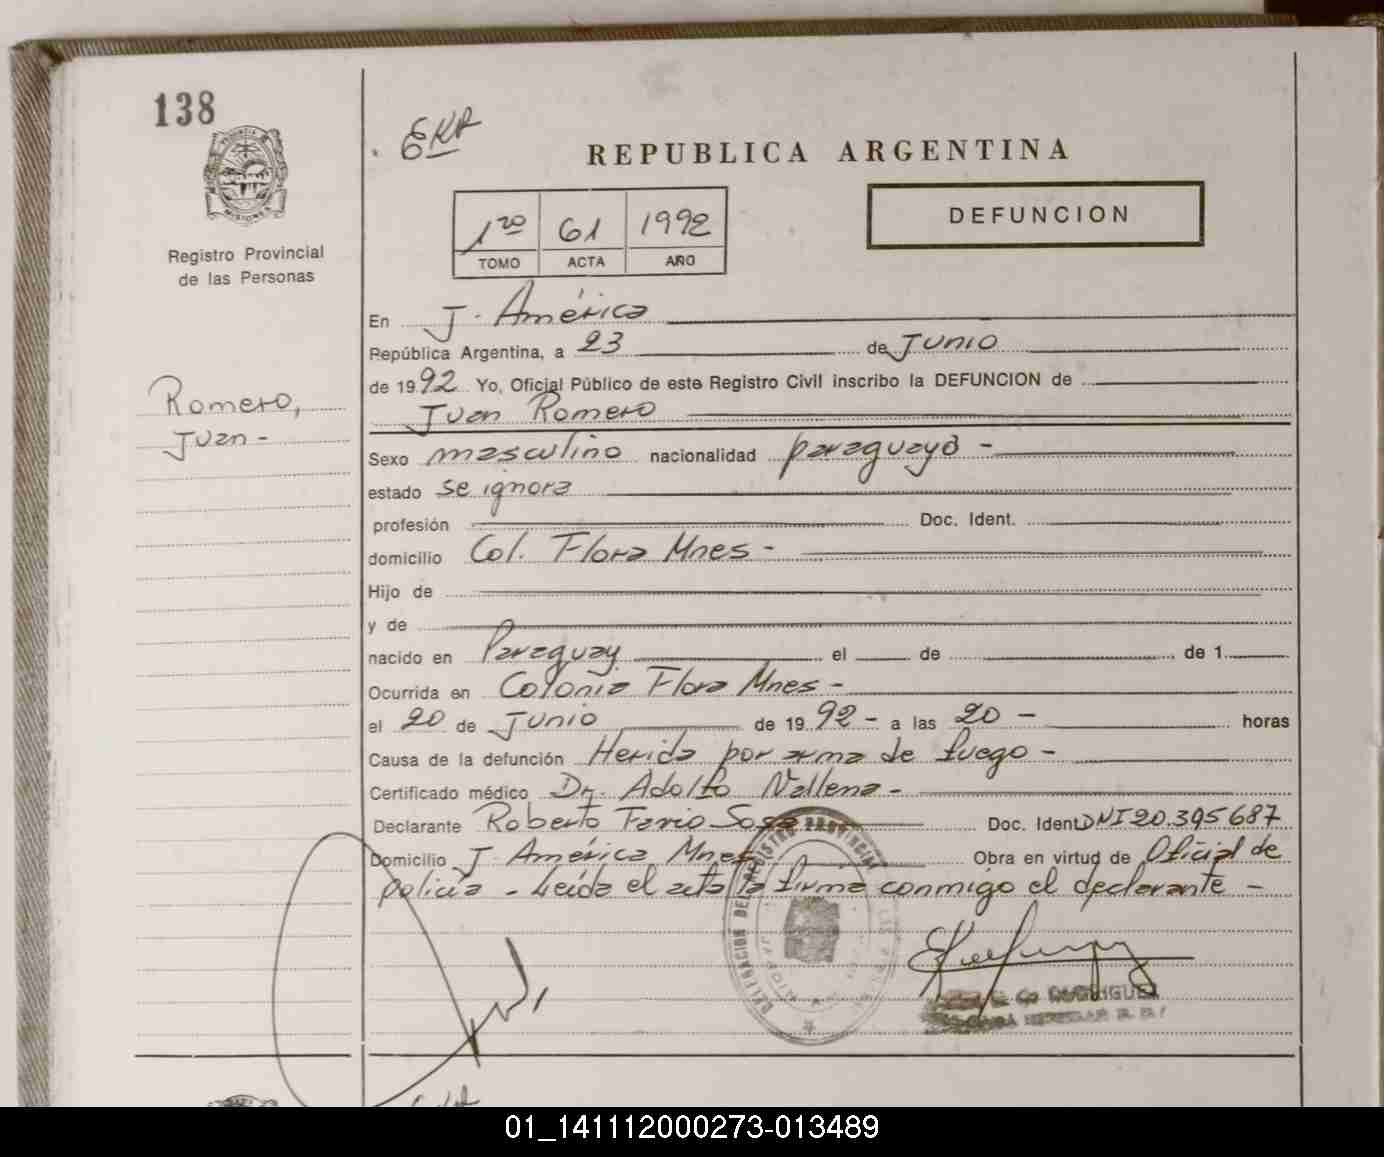 138
EKA
REPUBLICA ARGENTINA
PROVINCIA
MISIONES
Registro Provincial
de las Personas
1ro 61 1992
TOMO ACTA AÑO
DEFUNCION
En J. América
República Argentina, a 23 de Junio
de 1992 Yo, Oficial Público de este Registro Civil inscribo la DEFUNCION de
Juan Romero
Romero,
Juan -
Sexo masculino nacionalidad paraguaya -
estado se ignora
profesión Doc. Ident.
domicilio Col. Flora Mnes -
Hijo de
y de
nacido en Paraguay el de de 1
Ocurrida en Colonia Flora Mnes -
el 20 de Junio de 1992 - a las 20 - horas
Causa de la defunción Herida por arma de fuego -
Certificado médico Dr. Adolfo
Declarante Roberto Sosa Doc. Ident DNI 20.395687
Domicilio J. América Mnes Obra en virtud de Oficial de
policia - Leída el acta la firma conmigo el declarante -
DELEGACION DEL REGISTRO PROVINCIAL
RODRIGUEZ
01_141112000273-013489